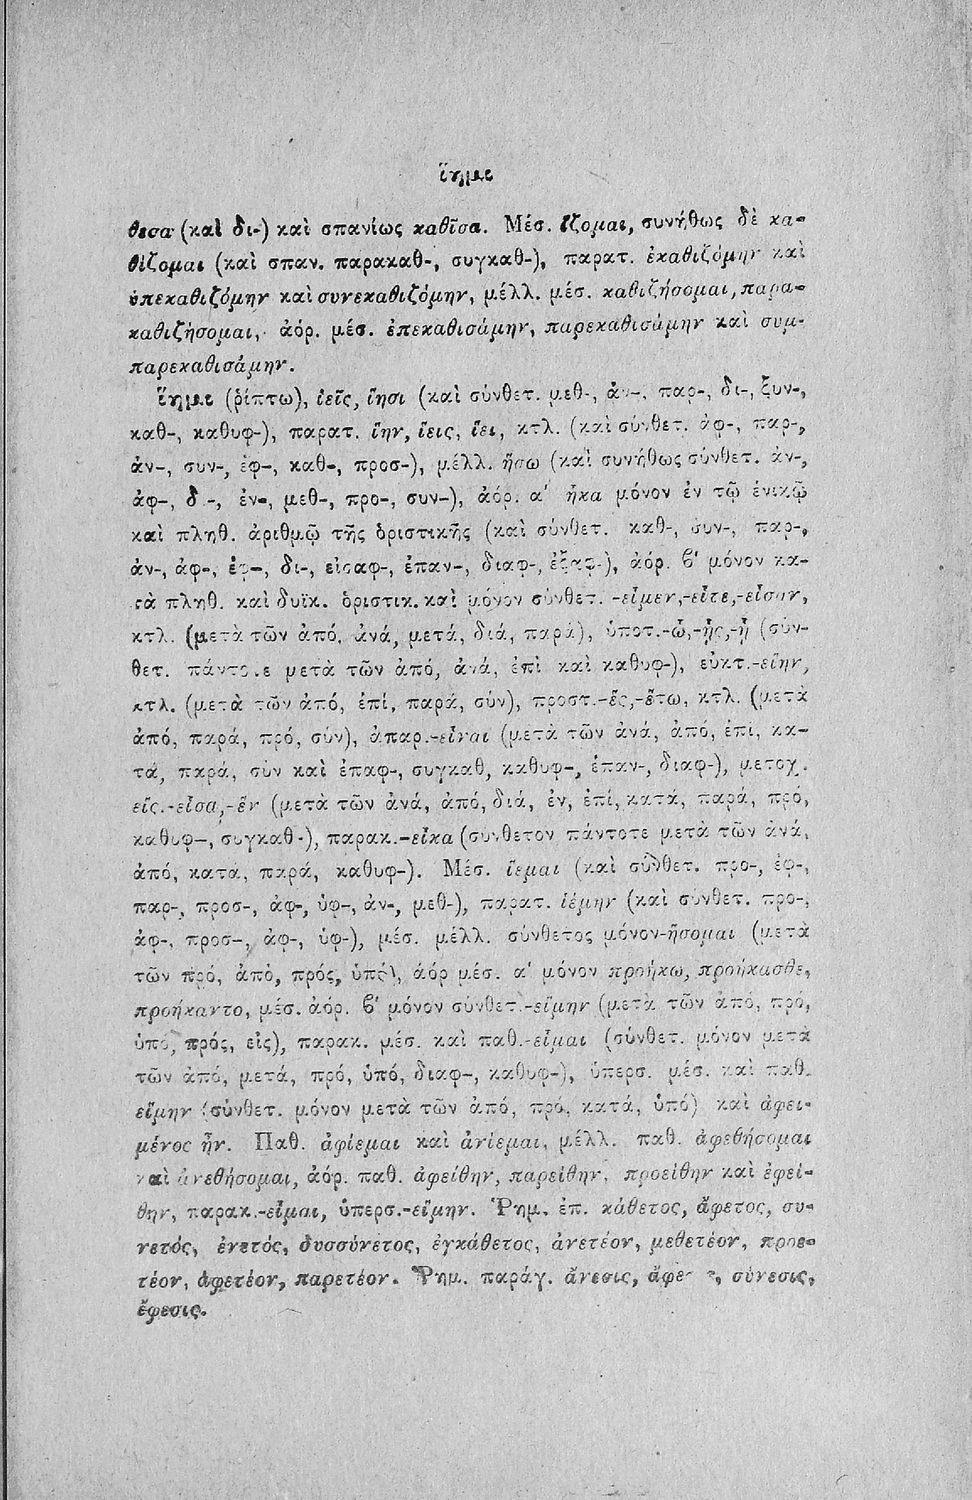 ἵημι
θισα (καὶ δι-) καὶ σπανίως καθῖσα. Μέσ. ἵζομαι, συνήθως δὲ κα-
θίζομαι (καὶ σπαν. παρακαθ-, συγκαθ-), παρατ. ἐκαθιζόμην καὶ
ὑπεκαθιζόμην καὶ συνεκαθιζόμην, μέλλ. μέσ. καθιζήσομαι, παρα-
καθιζήσομαι, ἀόρ. μέσ. ἐπεκαθισάμην, παρεκαθισάμην καὶ συμ-
παρεκαθισάμην.
ἵημι (ῥίπτω), ἱεῖς, ἵησι (καὶ σύνθετ. μεθ-, ἀν-, παρ-, δι-, ξυν-,
καθ-, καθυφ-), παρατ. ἵην, ἵεις, ἵει, κτλ. (καὶ σύνθετ. ἀφ-, παρ-,
ἀν-, συν-, ἐφ-, καθ-, προσ-), μέλλ. ἥσω (καὶ συνήθως σύνθετ. ἀν-,
ἀφ-, δ -, ἐν-, μεθ-, προ-, συν-), ἀόρ. α' ἧκα μόνον ἐν τῷ ἑνικῷ
καὶ πληθ. ἀριθμῷ τῆς ὁριστικῆς (καὶ σύνθετ. καθ-, συν-, παρ-,
ἀν-, ἀφ-, ἐφ-, δι-, εἰσαφ-, ἐπαν-, διαφ-, ἐξαφ-), ἀόρ. β' μόνον κα-
τὰ πληθ. καὶ δυϊκ. ὁριστικ. καὶ μόνον σύνθετ. -εἷμεν,-εἷτε,-εἷσαν,
κτλ. (μετὰ τῶν ἀπό, ἀνά, μετά, διά, παρά), ὑποτ.-ὧ,-ῇς,-ῇ (σύν-
θετ. πάντοτε μετὰ τῶν ἀπό, ἀνά, ἐπὶ καὶ καθυφ-), εὐκτ.-είην,
κτλ. (μετὰ τῶν ἀπό, ἐπί, παρά, σύν), προστ.-ἕς,-ἕτω, κτλ. (μετὰ
ἀπό, παρά, πρό, σύν), ἀπαρ.-εἷναι (μετὰ τῶν ἀνά, ἀπό, ἐπί, κα-
τά, παρά, σὺν καὶ ἐπαφ-, συγκαθ, καθυφ-, ἐπαν-, διαφ-), μετοχ.
εἵς.-εἷσα,-ἕν (μετὰ τῶν ἀνά, ἀπό, διά, ἐν, ἐπί, κατά, παρά, πρό,
καθυφ-, συγκαθ-), παρακ.-εἷκα (συνθετον πάντοτε μετὰ τῶν ἀνά,
ἀπό, κατά, παρά, καθυφ-). Μέσ. ἵεμαι (καὶ σύνθετ. προ-, ἐφ-,
παρ-, προσ-, ἀφ-, ὑφ-, ἀν-, μεθ-), παρατ. ἱέμην (καὶ σύνθετ. προ-,
ἀφ-, προσ-, ἀφ-, ὑφ-), μέσ. μέλλ. σύνθετος μόνον-ἥσομαι (μετὰ
τῶν πρό, ἀπό, πρός, ὑπό), ἀόρ μέσ. α' μόνον προήκω, προήκασθε,
προήκαντο, μέσ. ἀόρ. β' μόνον σύνθετ.-εἵμην (μετὰ τῶν ἀπό, πρό,
ὑπό, πρός, εἰς), παρακ. μέσ. καὶ παθ.-εἷμαι (σύνθετ. μόνον μετὰ
τῶν ἀπό, μετά, πρό, ὑπό, διαφ-, καθυφ-), ὑπερσ. μέσ. καὶ παθ.
εἵμην (σύνθετ. μόνον μετὰ τῶν ἀπό, πρό, κατά, ὑπό) καὶ ἀφει-
μένος ἦν. Παθ. ἀφίεμαι καὶ ἀνίεμαι, μέλλ. παθ. ἀφεθήσομαι
καὶ ἀνεθήσομαι, ἀόρ. παθ. ἀφείθην, παρείθην, προείθην καὶ ἐφεί-
θην, παρακ.-εἷμαι, ὑπερσ.-εἵμην. Ῥημ. ἐπ. κάθετος, ἄφετος, συ-
νετός, ἐνετός, δυσσύνετος, ἐγκάθετος, ἀνετέον, μεθετέον, προε-
τέον, ἀφετέον, παρετέον. Ῥημ. παράγ. ἄνεσις, σύνεσις,
ἔφεσις.